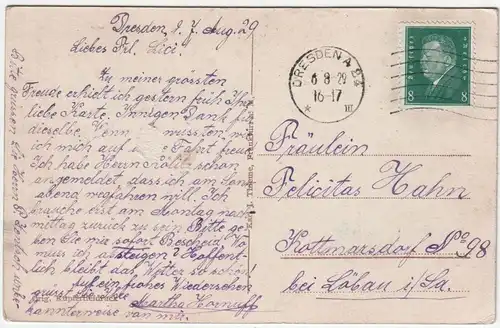 Dresden, d. 7. Aug. 29
Liebes Frl. Lici!
Zu meiner grössten
Freude erhielt ich gestern früh Ihre
liebe Karte. Innigen Dank für
dieselbe. Wenn wussten
mich auf Fahrt freue
Ich habe Herrn schon
angemeldet, dass ich am Sonn
abend wegfahren will. Ich
brauche erst am Montag nach
mittag zurück zu sein. Bitte ge
ben Sie mir sofort Bescheid, wo
muss ich aussteigen? Hoffent
lich bleibt das Wetter so schön.
Auf ein frohes Wiedersehen
grüsst Sie
Martha Hornuff
kannterweise von mir.
Bitte grüssen Sie Herrn
DRESDEN A 24
6 8-29
16-17
* III
DEUTSCHES REICH
8 8
Fräulein
Felicitas Hahn
Kottmarsdorf No 98
bei Löbau i/Sa.